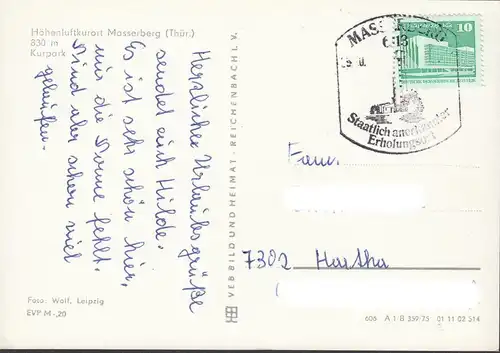 Höhenluftkurort Masserberg (Thür.)
830 m
Kurpark
Herzlicher Urlaubsgrüße
sendet euch Hilde.
Es ist sehr schön hier,
nur die Sonne fehlt.
Sind aber schon viel
gelaufen.
Foto: Wolf, Leipzig
EVP M -,20
VEB BILD UND HEIMAT · REICHENBACH I. V.
MASSERBERG
Staatlich anerkannter
Erholungsort
10
Fam.
7302 Hartha
606 A 1 B 359/75 01 11 02 314